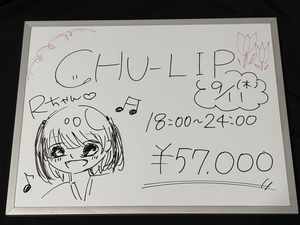 CHU-LIP
Rちゃん♡
9/11(木)
18:00〜24:00
¥57.000